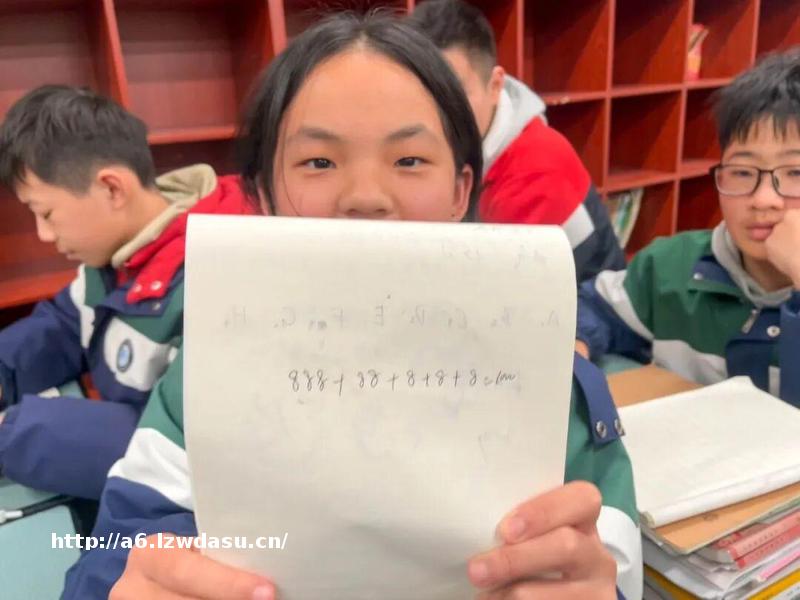 A. B. C. D. E F. G. H.
888 + 88 + 8 + 8 + 8 = 1000
http://a6.lzwdasu.cn/